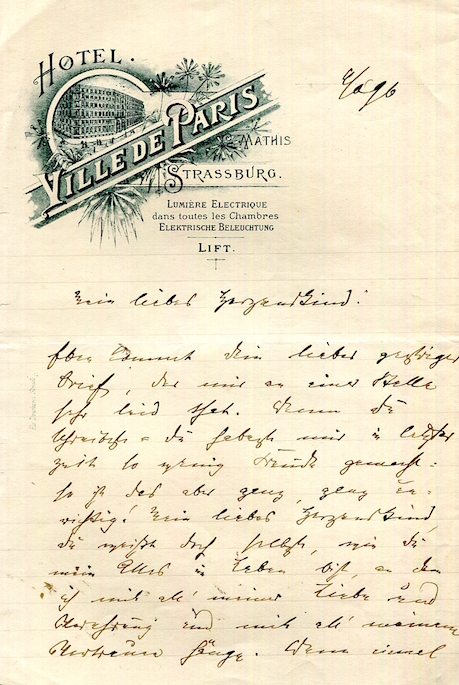 HOTEL.
VILLE DE PARIS
MATHIS
STRASSBURG.
LUMIÈRE ELECTRIQUE
dans toutes les Chambres
ELEKTRISCHE BELEUCHTUNG
LIFT.
Mein liebes Herzenskind!
Eben kommt Dein lieber gestriger
Brief, der mir an einer Stelle
sehr leid that. Wenn Du
schreibst Du hebest mir in letzter
Zeit so wenig Freude gemacht:
so ist das aber ganz, ganz un-
richtig! Mein liebes Herzenskind,
Du weißt doch selbst, wie Du
mein Alles im Leben bist, an dem
ich mit all' meiner Liebe und
Verehrung und mit all' meinem
Vertrauen hänge. Wenn